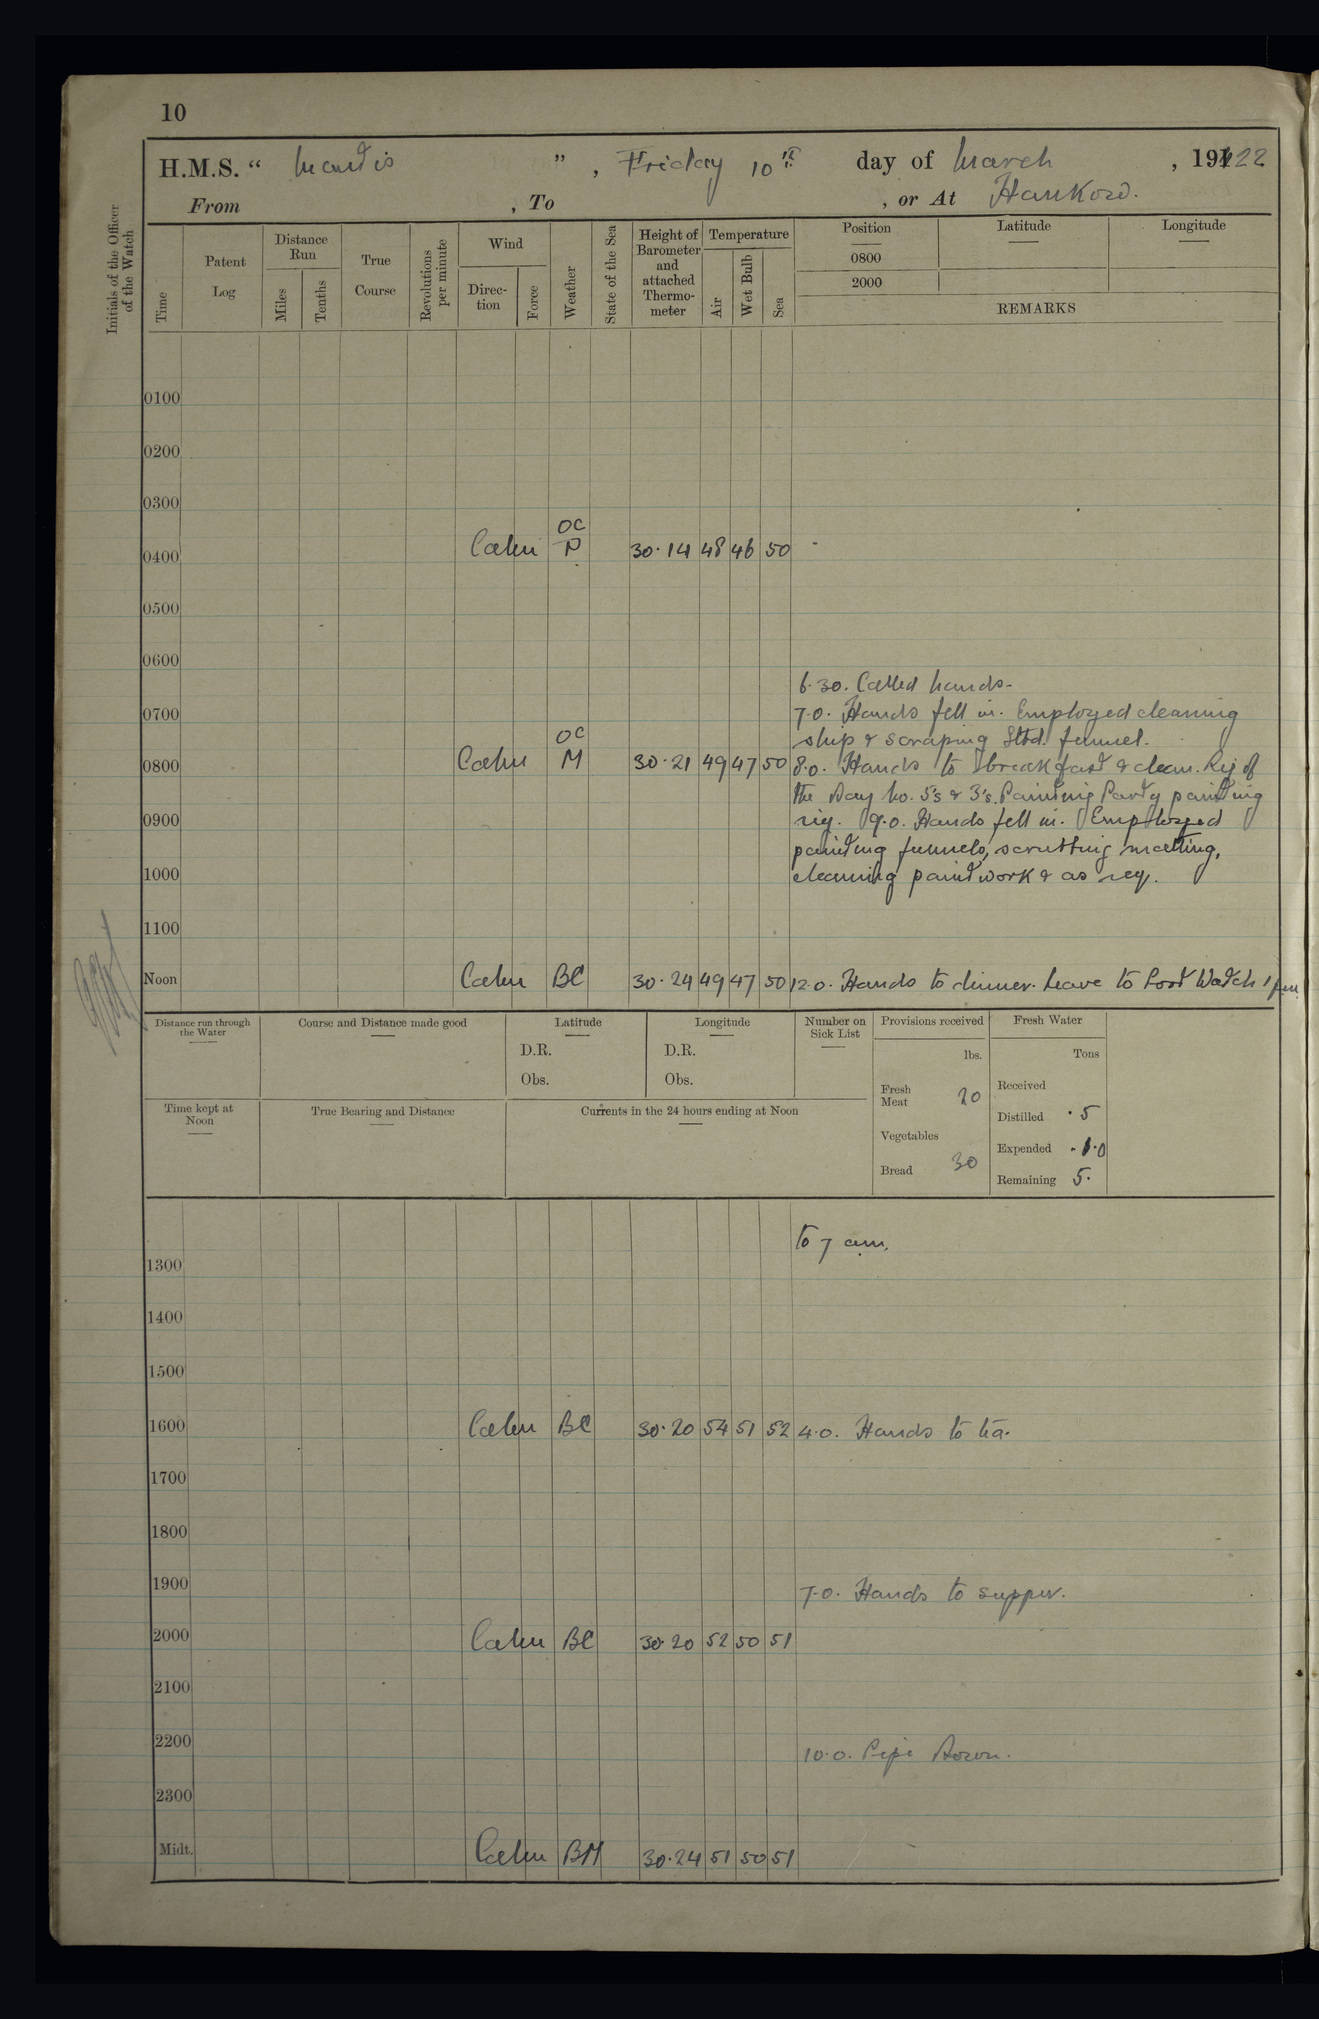 10
H.M.S. “ Mantis ”, Friday 10th day of March, 1922
From , To , or At Hankow.
Initials of the Officer of the Watch
Time
Patent Log
Distance Run
Miles
Tenths
True Course
Revolutions per minute
Wind
Direction
Force
Weather
State of the Sea
Height of Barometer and attached Thermometer
Temperature
Air
Wet Bulb
Sea
Position
0800
2000
Latitude
Longitude
REMARKS
0100
0200
0300
0400 Calm OC P 30.14 48 46 50
0500
0600
6.30. Called hands.
0700 7.0. Hands fell in. Employed cleaning
ship & scraping Stbd. funnel.
0800 Calm OC M 30.21 49 47 50 8.0. Hands to breakfast & clean. Rig of
the Day No. 5's & 3's. Painting Party painting
0900 rig. 9.0. Hands fell in. Employed
painting funnels, scrubbing matting,
1000 cleaning paintwork & as req.
1100
Noon Calm BC 30.24 49 47 50 12.0. Hands to dinner. Leave to Port Watch 1 pm
Distance run through the Water
Course and Distance made good
Latitude
D.R.
Obs.
Longitude
D.R.
Obs.
Number on Sick List
Provisions received
lbs.
Fresh Meat 20
Vegetables
Bread 30
Fresh Water
Tons
Received
Distilled .5
Expended 1.0
Remaining 5.
Time kept at Noon
True Bearing and Distance
Currents in the 24 hours ending at Noon
to 7 am.
1300
1400
1500
1600 Calm BC 30.20 54 51 52 4.0. Hands to tea.
1700
1800
1900 7.0. Hands to supper.
2000 Calm BC 30.20 52 50 51
2100
2200 10.0. Pipe Down.
2300
Midt. Calm BM 30.24 51 50 51